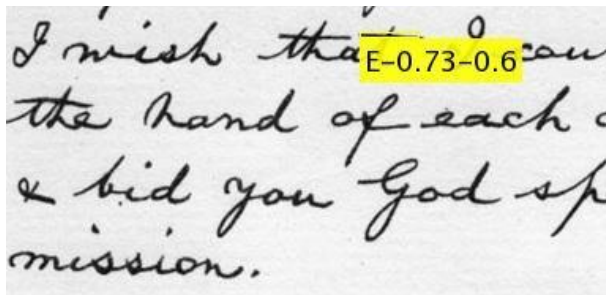 I wish that I
E–0.73–0.6
the hand of each
& bid you God
mission.